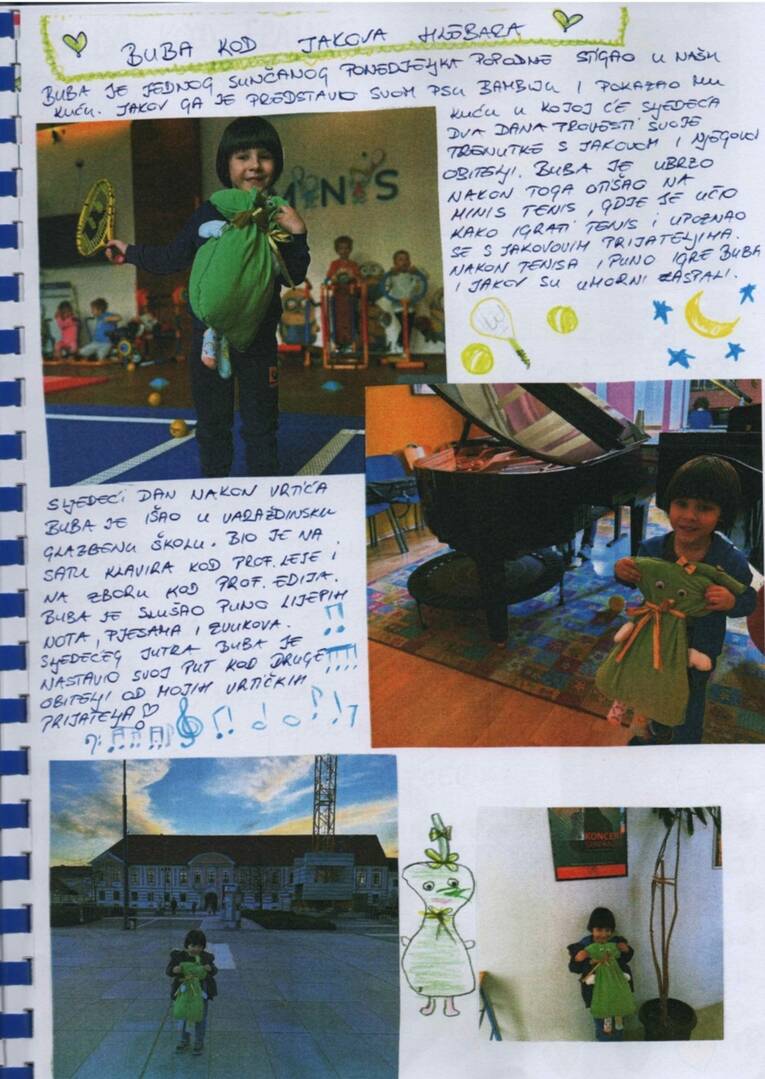 BUBA KOD JAKOVA HLEBARA
BUBA JE JEDNOG SUNČANOG PONEDJELJKA POPODNE STIGAO U NAŠU
KUĆU. JAKOV GA JE PREDSTAVIO SVOM PSU BAMBIJU I POKAZAO MU
KUĆU U KOJOJ ĆE SLJEDEĆA
DVA DANA PROVESTI SVOJE
TRENUTKE S JAKOVOM I NJEGOVOJ
OBITELJI. BUBA JE UBRZO
NAKON TOGA OTIŠAO NA
MINIS TENIS, GDJE JE UČIO
KAKO IGRATI TENIS I UPOZNAO
SE S JAKOVOVIM PRIJATELJIMA.
NAKON TENISA I PUNO IGRE BUBA
I JAKOV SU UMORNI ZASPALI.
MINIS
SLJEDEĆI DAN NAKON VRTIĆA
BUBA JE IŠAO U VARAŽDINSKU
GLAZBENU ŠKOLU. BIO JE NA
SATU KLAVIRA KOD PROF. LEJE I
NA ZBORU KOD PROF. EDIJA.
BUBA JE SLUŠAO PUNO LIJEPIH
NOTA, PJESAMA I ZVUKOVA.
SLJEDEĆEG JUTRA BUBA JE
NASTAVIO SVOJ PUT KOD DRUGE
OBITELJI OD MOJIH VRTIĆKIH
PRIJATELJA
KONCERT